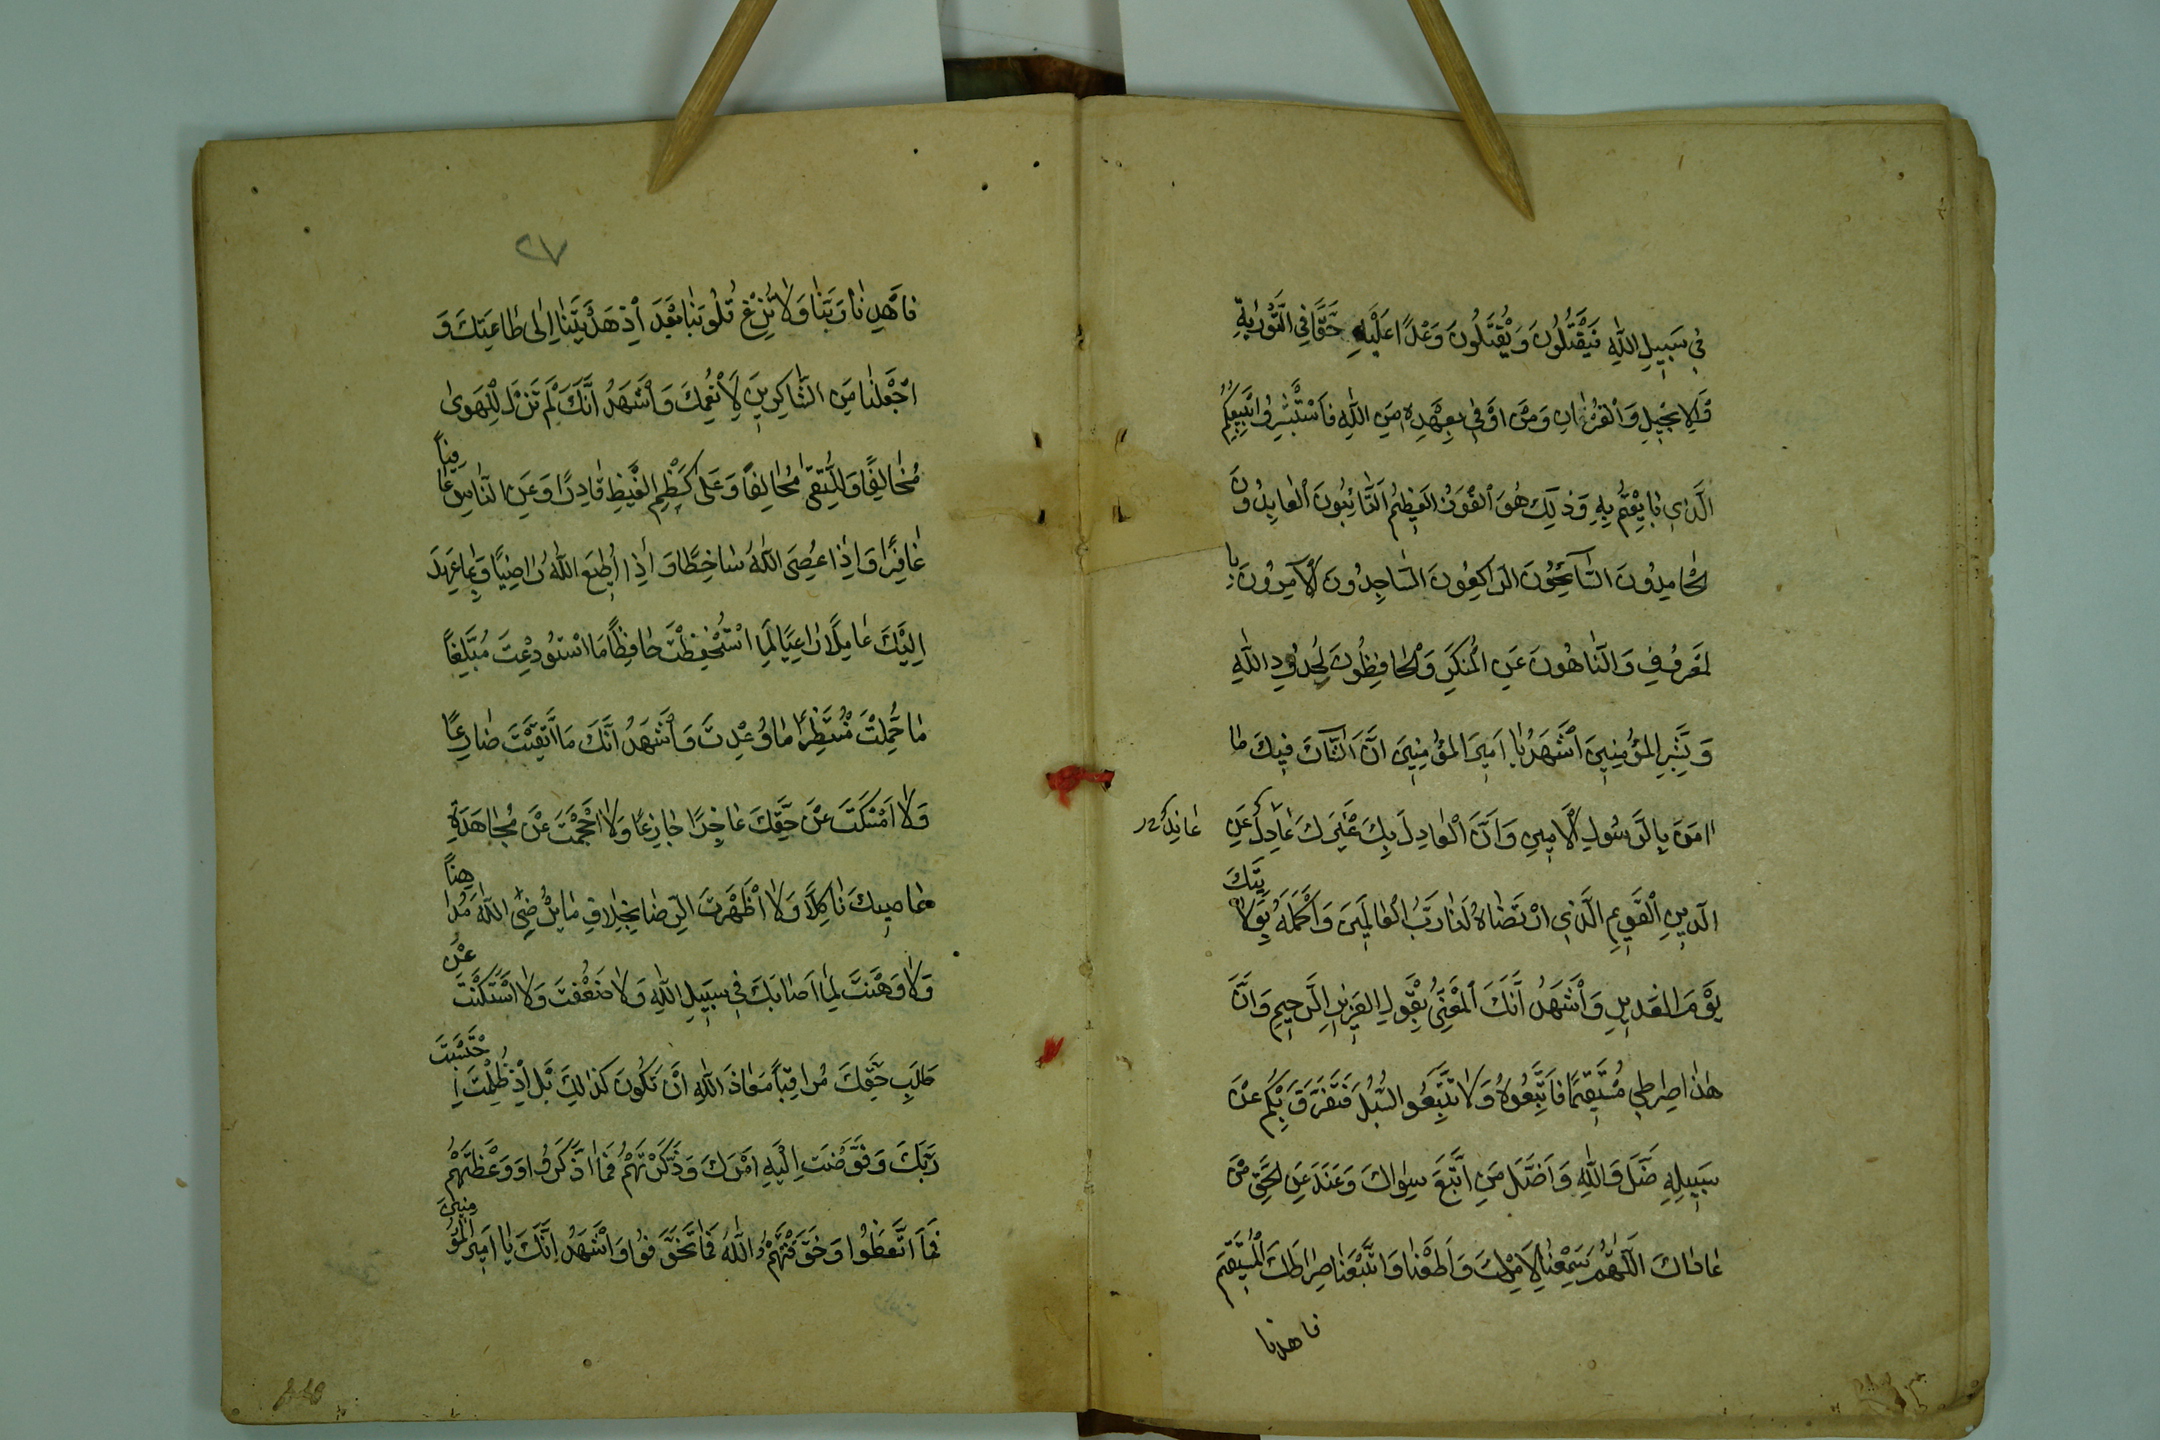 فِي سَبِيلِ اللّٰهِ فَيَقْتُلُونَ وَيُقْتَلُونَ وَعْدًا عَلَيْهِ حَقًّا فِي التَّوْرٰيةِ
وَالْاِنْجِيلِ وَالْقُرْاٰنِ وَمَنْ اَوْفٰي بِعَهْدِهِ مِنَ اللّٰهِ فَاسْتَبْشِرُوا بِبَيْعِكُمُ
الَّذِي بٰايَعْتُمْ بِهِ وَذٰلِكَ هُوَ الْفَوْزُ الْعَظِيمُ اَلتَّائِبُونَ الْعٰابِدُونَ
الْحٰامِدُونَ السَّائِحُونَ الرّٰاكِعُونَ السّٰاجِدُونَ الْآمِرُونَ بِا
لْمَعْرُوفِ وَالنّٰاهُونَ عَنِ الْمُنْكَرِ وَالْحٰافِظُونَ لِحُدُودِ اللّٰهِ
وَبَشِّرِ الْمُؤْمِنِينَ اَشْهَدُ يٰا اَمِيرَ الْمُؤْمِنِينَ اَنَّ الشّٰاكَّ فِيكَ مٰا
اٰمَنَ بِالرَّسُولِ الْاَمِينِ وَاَنَّ الْعٰادِلَ بِكَ غَيْرَكَ عٰادِلٌ عَنِ
عٰانِدٌ
الدِّينِ الْقَوِيمِ الَّذِي ارْتَضٰاهُ لَنٰا رَبُّ الْعٰالَمِينَ وَاَكْمَلَهُ بِوَلٰايَتِكَ
يَوْمَ الْغَدِيرِ وَاَشْهَدُ اَنَّكَ الْمَعْنِيُّ بِقَوْلِ الْعَزِيزِ الرَّحِيمِ وَاَنَّ
هٰذٰا صِرٰاطِي مُسْتَقِيمًا فَاتَّبِعُوهُ وَلٰا تَتَّبِعُوا السُّبُلَ فَتَفَرَّقَ بِكُمْ عَنْ
سَبِيلِهِ ضَلَّ وَاللّٰهِ وَاَضَلَّ مَنِ اتَّبَعَ سِوٰاكَ وَعَنَدَ عَنِ الْحَقِّ مَنْ
عٰادٰاكَ اَللّٰهُمَّ سَمِعْنٰا لِاَمْرِكَ وَاَطَعْنٰا وَاتَّبَعْنٰا صِرٰاطَكَ الْمُسْتَقِيمَ
فاهدنا
٢٧
فَاهْدِنٰا رَبَّنٰا وَلٰا تُزِغْ قُلُوبَنٰا بَعْدَ اِذْ هَدَيْتَنٰا اِلٰى طٰاعَتِكَ وَ
اجْعَلْنٰا مِنَ الشّٰاكِرِينَ لِاَنْعُمِكَ وَاَشْهَدُ اَنَّكَ لَمْ تَزَلْ لِلْهَوٰى
مُخٰالِفًا وَلِلتُّقٰى مُحٰالِفًا وَعَلٰى كَظْمِ الْغَيْظِ قٰادِرًا وَعَنِ النّٰاسِ عٰافِيًا
غٰافِرًا وَاِذٰا عُصِيَ اللّٰهُ سٰاخِطًا وَاِذٰا اُطِيعَ اللّٰهُ رٰاضِيًا وَبِمٰا عَهِدَ
اِلَيْكَ عٰامِلًا رٰاعِيًا لِمَا اسْتُحْفِظْتَ حٰافِظًا مَا اسْتُودِعْتَ مُبَلِّغًا
مٰا حُمِّلْتَ مُنْتَظِرًا مٰا وُعِدْتَ وَاَشْهَدُ اَنَّكَ مَا اتَّقَيْتَ ضٰارِعًا
وَلٰا اَمْسَكْتَ عَنْ حَقِّكَ عٰاجِزًا جٰازِعًا وَلٰا اَحْجَمْتَ عَنْ مُجٰاهَدَةِ
عٰاصِيكَ نٰاكِلًا وَلٰا اَظْهَرْتَ الرِّضٰا بِخِلٰافِ مٰا يُرْضِي اللّٰهَ مُدٰاهِنًا
وَلٰا وَهَنْتَ لِمٰا اَصٰابَكَ فِي سَبِيلِ اللّٰهِ وَلٰا ضَعُفْتَ وَلَا اسْتَكَنْتَ عَنْ
طَلَبِ حَقِّكَ مُرٰاقِبًا مَعٰاذَ اللّٰهِ اَنْ تَكُونَ كَذٰلِكَ بَلْ اِذْ ظُلِمْتَ احْتَسَبْتَ
رَبَّكَ وَفَوَّضْتَ اِلَيْهِ اَمْرَكَ وَذَكَّرْتَهُمْ فَمَا اذَّكَرُوا وَوَعَظْتَهُمْ
فَمَا اتَّعَظُوا وَخَوَّفْتَهُمُ اللّٰهَ فَمٰا تَخَوَّفُوا وَاَشْهَدُ اَنَّكَ يٰا اَمِيرَ الْمُؤْمِنِينَ